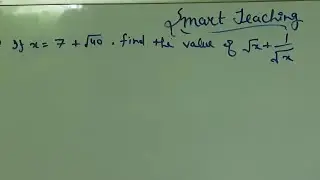 Smart Teaching
If x = 7 + √40 . find the value of √x + 1/√x